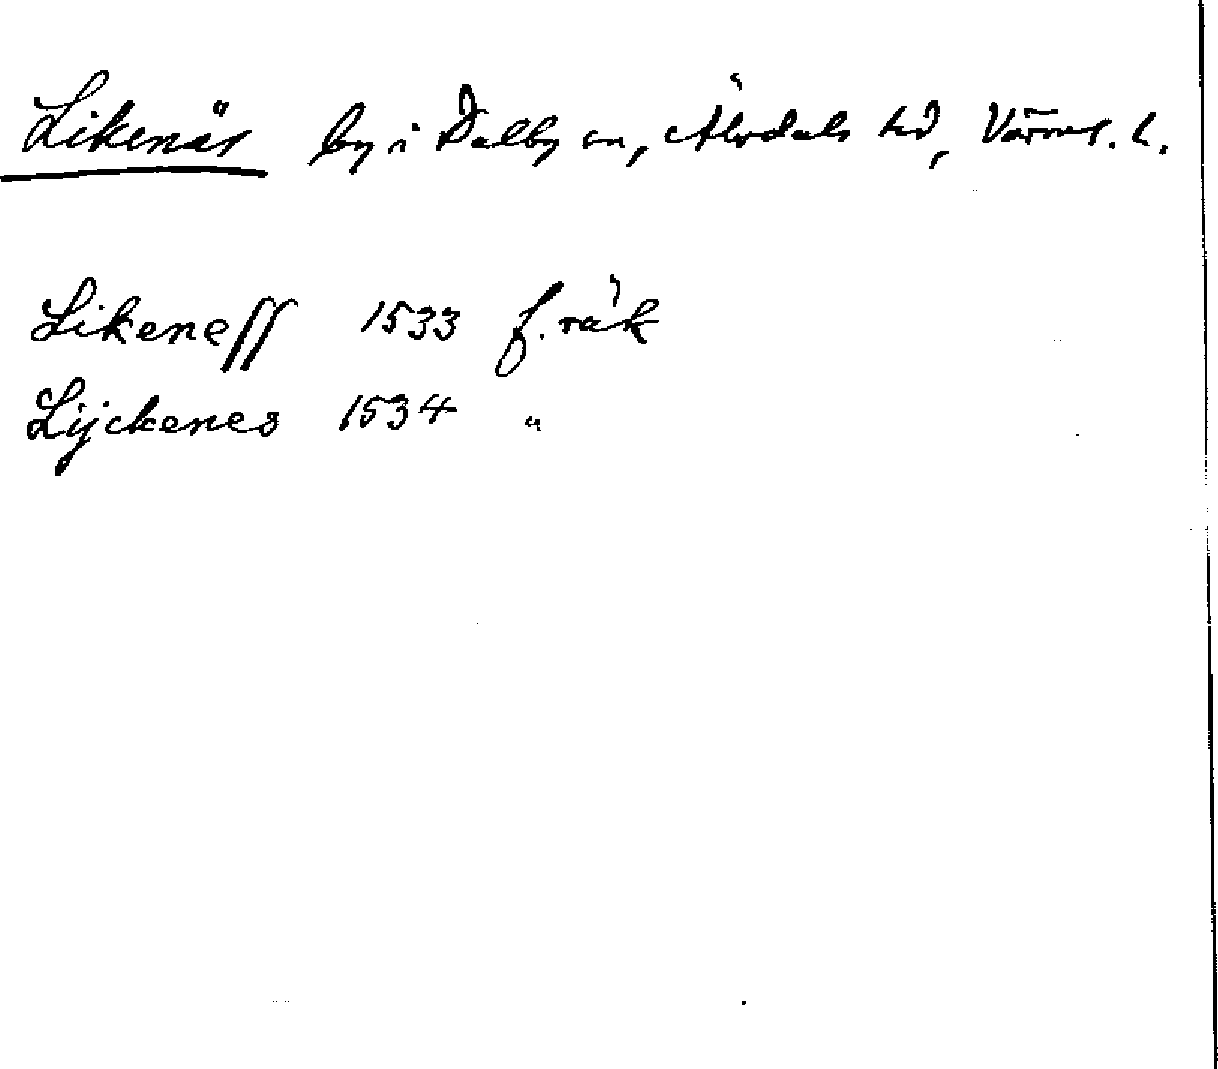 Likenäs by i Dalby sn, Älvdals hd, Värml. l.
Likeneff 1533 f. räk
Lijckenes 1534 "